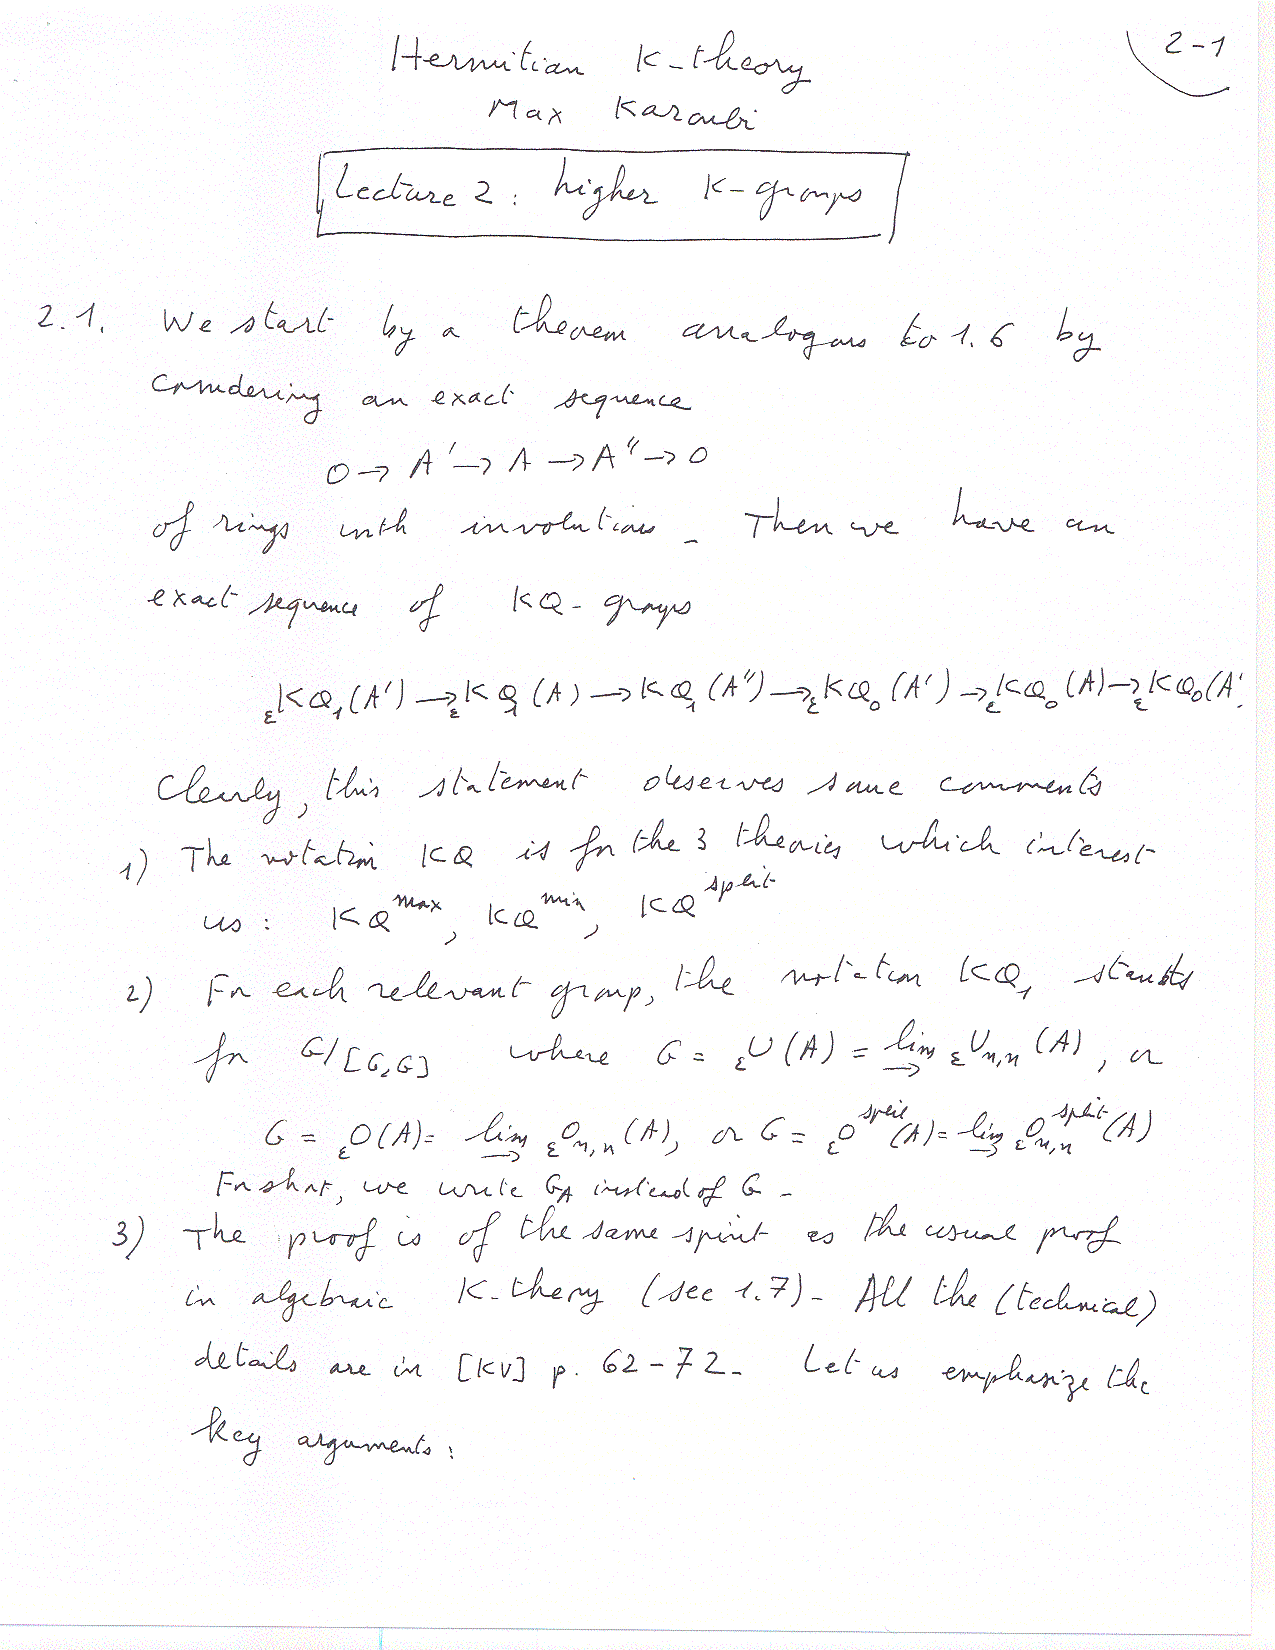 2-1
Hermitian K-theory
Max Karoubi
Lecture 2: higher K-groups
2.1. We start by a theorem analogous to 1.6 by
considering an exact sequence
0 → A' → A → A'' → 0
of rings with involutions. Then we have an
exact sequence of KQ-groups
εKQ₁(A') → εKQ₁(A) → KQ₁(A'') → εKQ₀(A') → εKQ₀(A) → εKQ₀(A'
Clearly, this statement deserves some comments
1) The notation KQ is for the 3 theories which interest
us: KQ^max, KQ^min, KQ^split
2) For each relevant group, the notation KQ₁ stands
for G/[G,G] where G = εU(A) = lim→ εUn,n(A), or
G = εO(A) = lim→ εOn,n(A), or G = εO^split(A) = lim→ εOn,n^split(A)
For short, we write G_A instead of G.
3) The proof is of the same spirit as the usual proof
in algebraic K-theory (see 1.7). All the (technical)
details are in [KV] p. 62-72. Let us emphasize the
key arguments: